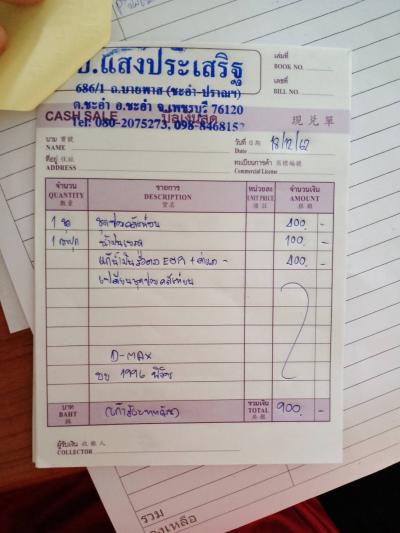 อ.แสงประเสริฐ
686/1 ถ.บายพาส (ชะอำ-ปราณฯ)
ต.ชะอำ อ.ชะอำ จ.เพชรบุรี 76120
Tel: 080-2075273, 098-8468152
เล่มที่
BOOK NO.
เลขที่
BILL NO.
CASH SALE บิลเงินสด 現兌單
นาม 寶號
NAME
วันที่ 日期 18/12/62
Date
ที่อยู่ 住址
ADDRESS
ทะเบียนการค้า 商標編號
Commercial License
จำนวน รายการ หน่วยละ จำนวนเงิน
QUANTITY DESCRIPTION UNIT PRICE AMOUNT
數量 貨名 價目 銀額
1 ชุด ชุดซ่อมคลัทช์บน 400.-
1 กระปุก น้ำมันเบรค 100.-
400.-
เปลี่ยนชุดซ่อมคลัทช์บน
D-MAX
1996
บาท (เก้าร้อยบาทถ้วน) รวมเงิน 900.-
BAHT TOTAL
ผู้รับเงิน 收銀人
COLLECTOR
รวม
งเหลือ